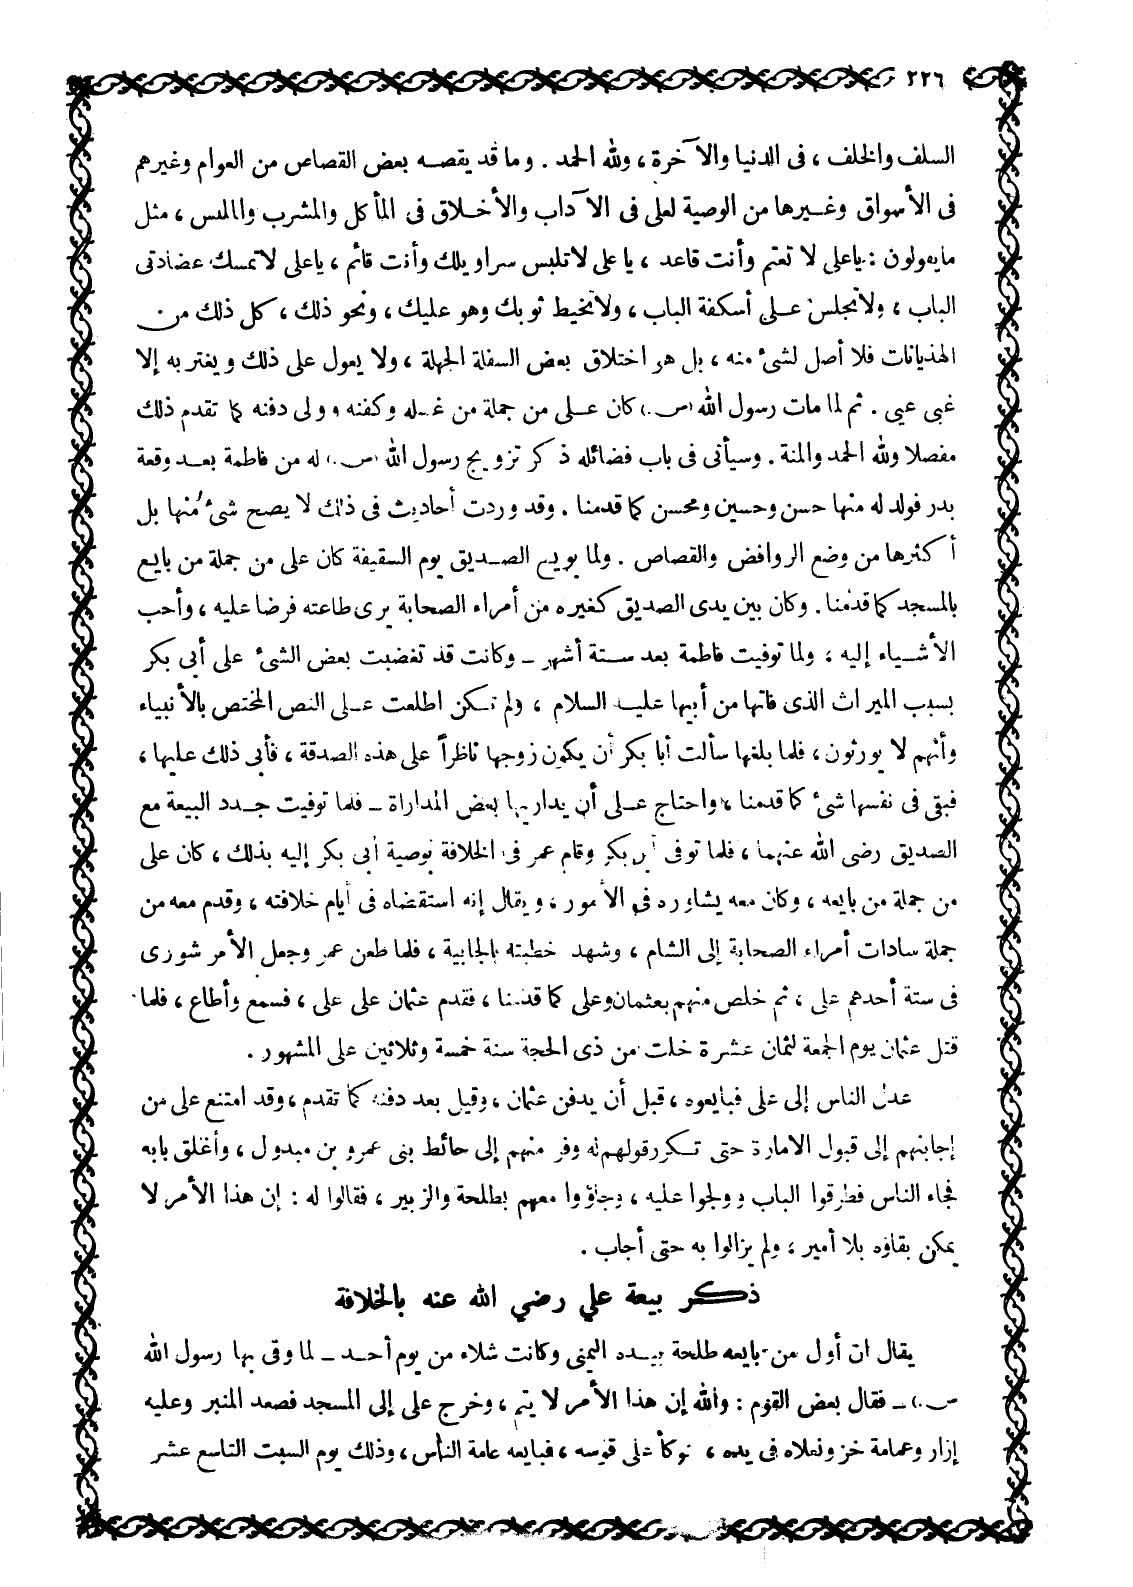 ٢٢٦
السلف والخلف ، فى الدنيا والآخرة ، ولله الحمد . وما قد يقصه بعض القصاص من العوام وغيرهم
فى الأسواق وغيرها من الوصية لعلى فى الآداب والأخلاق فى المأكل والمشرب والملبس ، مثل
مايقولون : ياعلى لا تعتم وأنت قاعد ، ياعلى لاتلبس سراويلك وأنت قائم ، ياعلى لاتمسك عضادتى
الباب ، ولاتجلس على أسكفة الباب ، ولاتخيط ثوبك وهو عليك ، ونحو ذلك ، كل ذلك من
الهذيانات فلا أصل لشئ منه ، بل هو اختلاق بعض السفلة الجهلة ، ولا يعول على ذلك ويغتر به إلا
غبى عيى . ثم لما مات رسول الله (ص.) كان على من جملة من غسله وكفنه وولى دفنه كما تقدم ذلك
مفصلا ولله الحمد والمنة . وسيأتى فى باب فضائله ذكر تزويج رسول الله (ص.) له من فاطمة بعد وقعة
بدر فولد له منها حسن وحسين ومحسن كما قدمنا . وقد وردت أحاديث فى ذلك لا يصح شئ منها بل
أكثرها من وضع الروافض والقصاص . ولما بويع الصديق يوم السقيفة كان على من جملة من بايع
بالمسجد كما قدمنا . وكان بين يدى الصديق كغيره من أمراء الصحابة يرى طاعته فرضا عليه ، وأحب
الأشياء إليه ، ولما توفيت فاطمة بعد ستة أشهر _ وكانت قد تغضبت بعض الشئ على أبى بكر
بسبب الميراث الذى فاتها من أبيها عليه السلام ، ولم تكن اطلعت على النص المختص بالأنبياء
وأنهم لا يورثون ، فلما بلغها سألت أبا بكر أن يكون زوجها ناظراً على هذه الصدقة ، فأبى ذلك عليها ،
فبقى فى نفسها شئ كما قدمنا ، واحتاج على أن يداريها بعض المداراة _ فلما توفيت جدد البيعة مع
الصديق رضى الله عنهما ، فلما توفى أبو بكر وقام عمر فى الخلافة بوصية أبى بكر إليه بذلك ، كان على
من جملة من بايعه ، وكان معه يشاوره فى الأمور ، ويقال إنه استقضاه فى أيام خلافته ، وقدم معه من
جملة سادات أمراء الصحابة إلى الشام ، وشهد خطبته بالجابية ، فلما طعن عمر وجعل الأمر شورى
فى ستة أحدهم على ، ثم خلص منهم بعثمان وعلى كما قدمنا ، فقدم عثمان على على ، فسمع وأطاع ، فلما
قتل عثمان يوم الجمعة لثمان عشرة خلت من ذى الحجة سنة خمسة وثلاثين على المشهور .
عدل الناس إلى على فبايعوه ، قبل أن يدفن عثمان ، وقيل بعد دفنه كما تقدم ، وقد امتنع على من
إجابتهم إلى قبول الامارة حتى تكرر قولهم له وفر منهم إلى حائط بنى عمرو بن مبدول ، وأغلق بابه
فجاء الناس فطرقوا الباب وولجوا عليه ، وجاؤوا معهم بطلحة والزبير ، فقالوا له : إن هذا الأمر لا
يمكن بقاؤه بلا أمير ، ولم يزالوا به حتى أجاب .
ذكر بيعة علي رضي الله عنه بالخلافة
يقال ان أول من بايعه طلحة بيده اليمنى وكانت شلاء من يوم أحد _ لما وقى بها رسول الله
ص.) _ فقال بعض القوم : والله إن هذا الأمر لا يتم ، وخرج على إلى المسجد فصعد المنبر وعليه
إزار وعمامة خز ونعلاه فى يده ، توكأ على قوسه ، فبايعه عامة الناس ، وذلك يوم السبت التاسع عشر